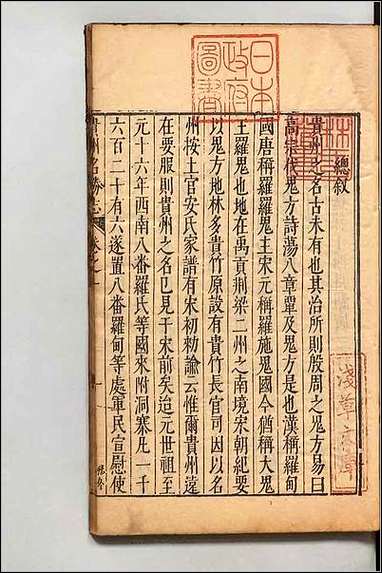 日本
政府
圖書
林
淺草文庫
總敘
貴州之名古未有也其治所則殷周之鬼方易曰
高宗伐鬼方詩蕩八章覃及鬼方是也漢稱羅甸
國唐稱羅羅鬼主宋元稱羅施鬼國今猶稱大鬼
王羅鬼也地在禹貢荆梁二州之南境宋朝紀要
以鬼方地林多貴竹原設有貴竹長官司因以名
州按土官安氏家譜有宋初勑諭云惟爾貴州遠
在要服則貴州之名已見于宋前矣迨元世祖至
元十六年西南八番羅氏等國來附洞寨凡一千
六百二十有六遂置八番羅甸等處軍民宣慰使
貴州名勝志 卷之一